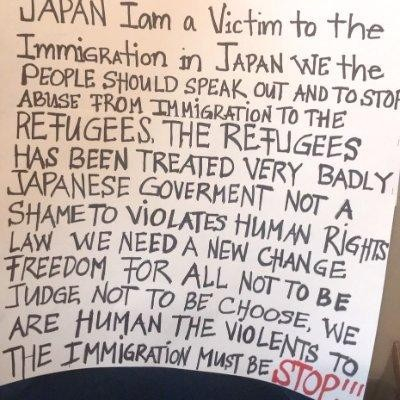 JAPAN I am a Victim to the
Immigration in JAPAN WE the
PEOPLE SHOULD SPEAK OUT AND TO STOP
ABUSE FROM IMMIGRATION TO THE
REFUGEES. THE REFUGEES
HAS BEEN TREATED VERY BADLY,
JAPANESE GOVERMENT NOT A
SHAME TO VIOLATES HUMAN RIGHTS
LAW WE NEED A NEW CHANGE
FREEDOM FOR ALL NOT TO BE
JUDGE, NOT TO BE CHOOSE, WE
ARE HUMAN THE VIOLENTS TO
THE IMMIGRATION MUST BE STOP!!!